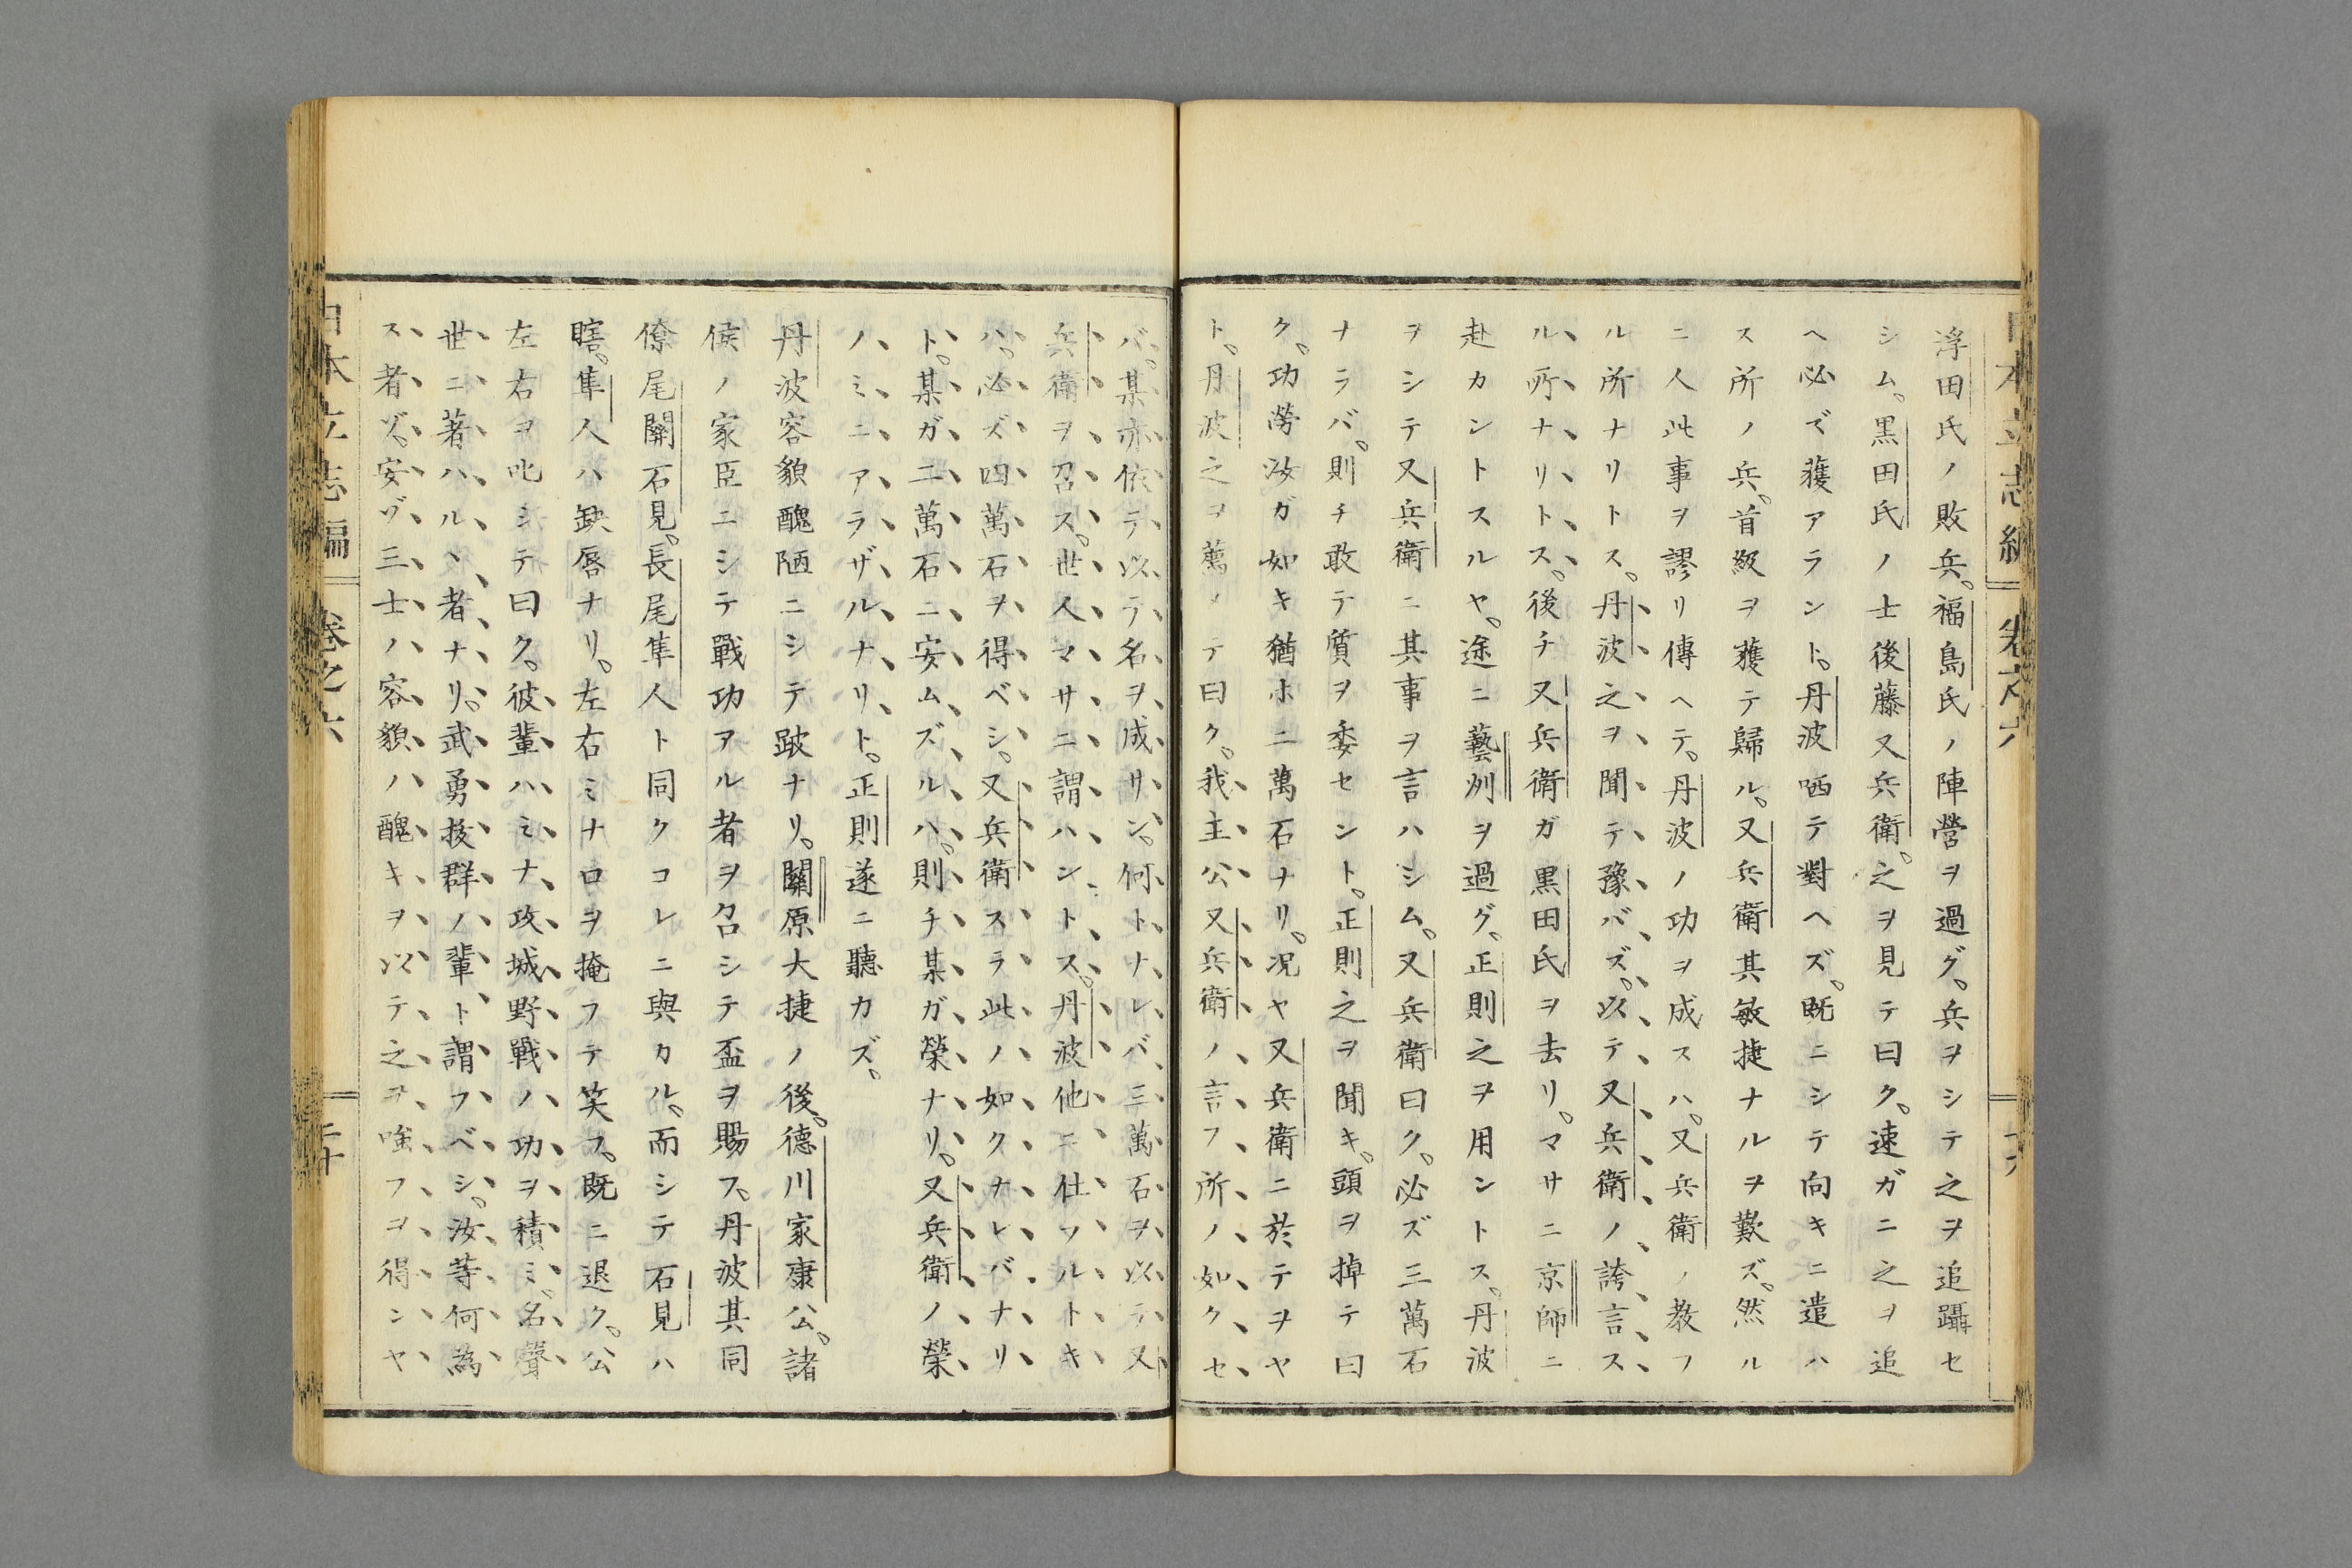 浮田氏ノ敗兵。福島氏ノ陣營ヲ過グ、兵ヲシテ之ヲ追躡セ
シム。黒田氏ノ士後藤又兵衛。之ヲ見テ曰ク。速ガニ之ヲ追
ヘ必ズ獲アラント。丹波哂テ對ヘズ。既ニシテ向キニ遣ハ
ス所ノ兵。首級ヲ獲テ歸ル。又兵衛其敏捷ナルヲ歎ズ。然ル
ニ人此事ヲ謬リ傳ヘテ。丹波ノ功ヲ成スハ。又兵衛ノ教フ
ル所ナリトス。丹波之ヲ聞テ豫バズ。以テ又兵衛ノ誇言ス
ル所ナリトス。後チ又兵衛ガ黒田氏ヲ去リ。マサニ京師ニ
赴カントスルヤ。途ニ藝州ヲ過グ、正則之ヲ用ントス。丹波
ヲシテ又兵衛ニ其事ヲ言ハシム。又兵衛曰ク。必ズ三萬石
ナラバ。則チ敢テ質ヲ委セント。正則之ヲ聞キ。頭ヲ掉テ曰
ク。功勞汝ガ如キ猶ホ二萬石ナリ。况ヤ又兵衛ニ於テヲヤ
ト。丹波之ヲ薦メテ曰ク。我主公又兵衛ノ言フ所ノ如クセ
バ。某亦依テ以テ名ヲ成サン。何トナレバ三萬石ヲ以テ又
兵衛ヲ召ス。世人マサニ謂ハントス。丹波他ニ仕フルトキ
ハ。必ズ四萬石ヲ得ベシ。又兵衛スラ此ノ如クナレバナリ
ト。某ガ二萬石ニ安ムズルハ。則チ某ガ榮ナリ。又兵衛ノ榮
ノミニアラザルナリト。正則遂ニ聽カズ。
丹波容貌醜陋ニシテ跛ナリ。關原大捷ノ後。德川家康公。諸
侯ノ家臣ニシテ戰功アル者ヲ召シテ盃ヲ賜フ。丹波其同
僚尾關石見。長尾隼人ト同クコレニ與カル。而シテ石見ハ
瞎。隼人ハ缺唇ナリ。左右ミナ口ヲ掩フテ笑フ。既ニ退ク。公
左右ヲ叱シテ曰ク。彼輩ハミナ攻城野戰ノ功ヲ積ミ。名聲
世ニ著ハルヽ者ナリ。武勇拔群ノ輩ト謂フベシ。汝等何為
ス者ゾ。安ゾ三士ノ容貌ノ醜キヲ以テ之ヲ嗤フヲ得ンヤ
日本立志編
卷之六